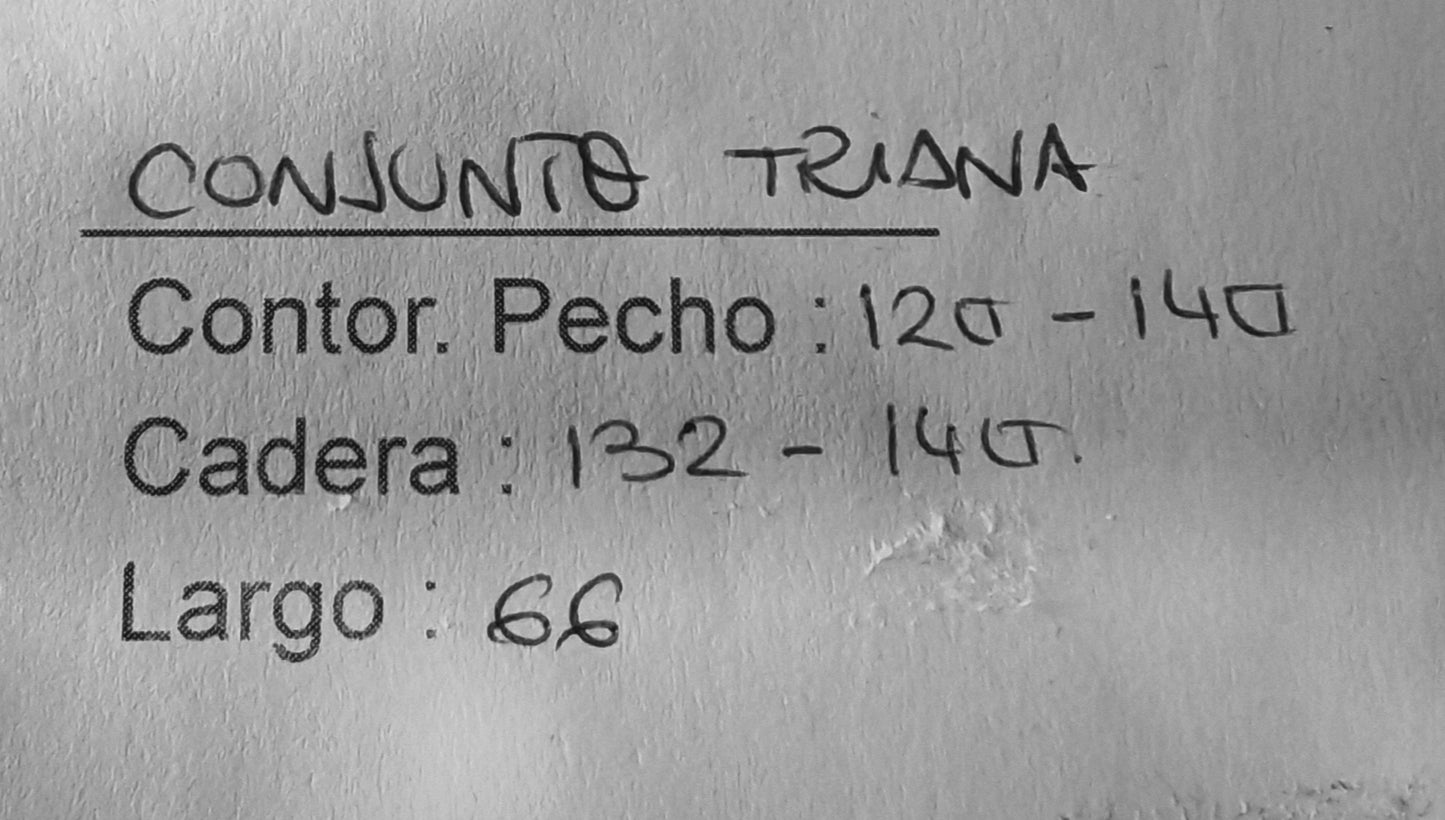 CONJUNTO TRIANA
Contor. Pecho : 120 - 140
Cadera : 132 - 140.
Largo : 66